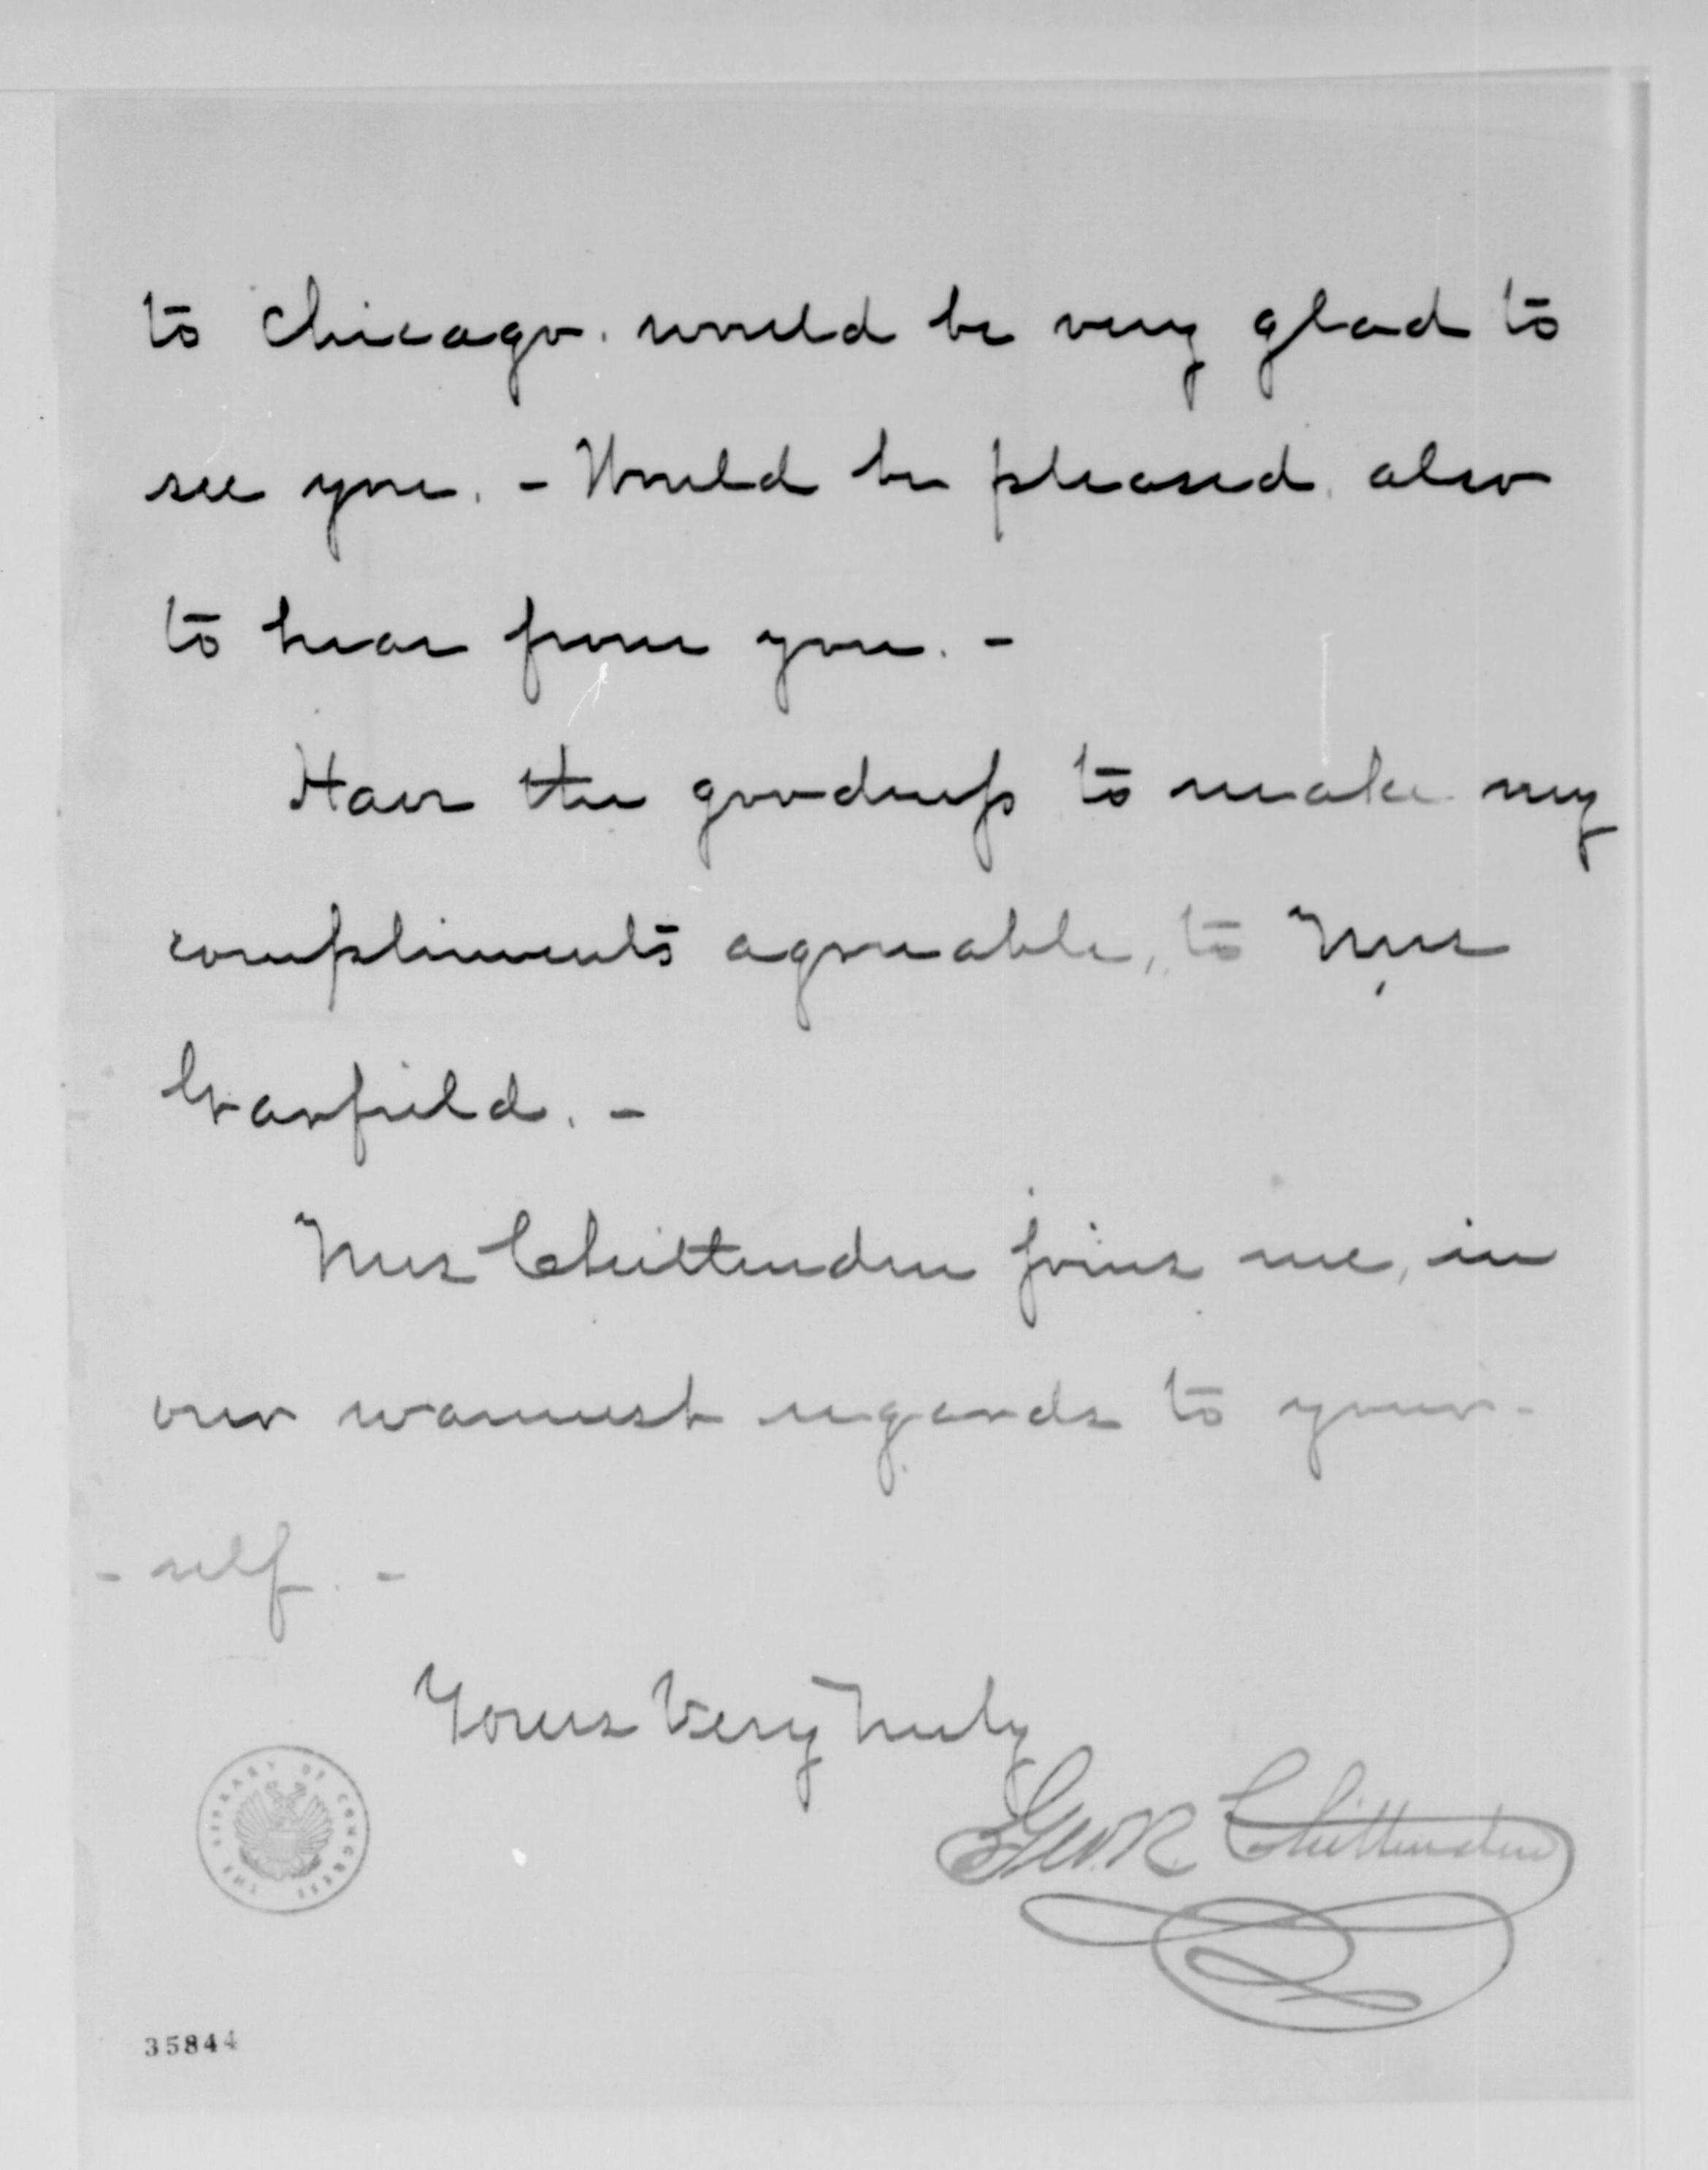 to Chicago. would be very glad to
see you. - Would be pleased, also
to hear from you. -
Have the goodness to make my
compliments agreeable, to Mrs
Garfield. -
Mrs Chittenden joins me, in
our warmest regards to your-
- self. -
Yours Very Truly
Geo. R. Chittenden
THE LIBRARY OF CONGRESS
35844